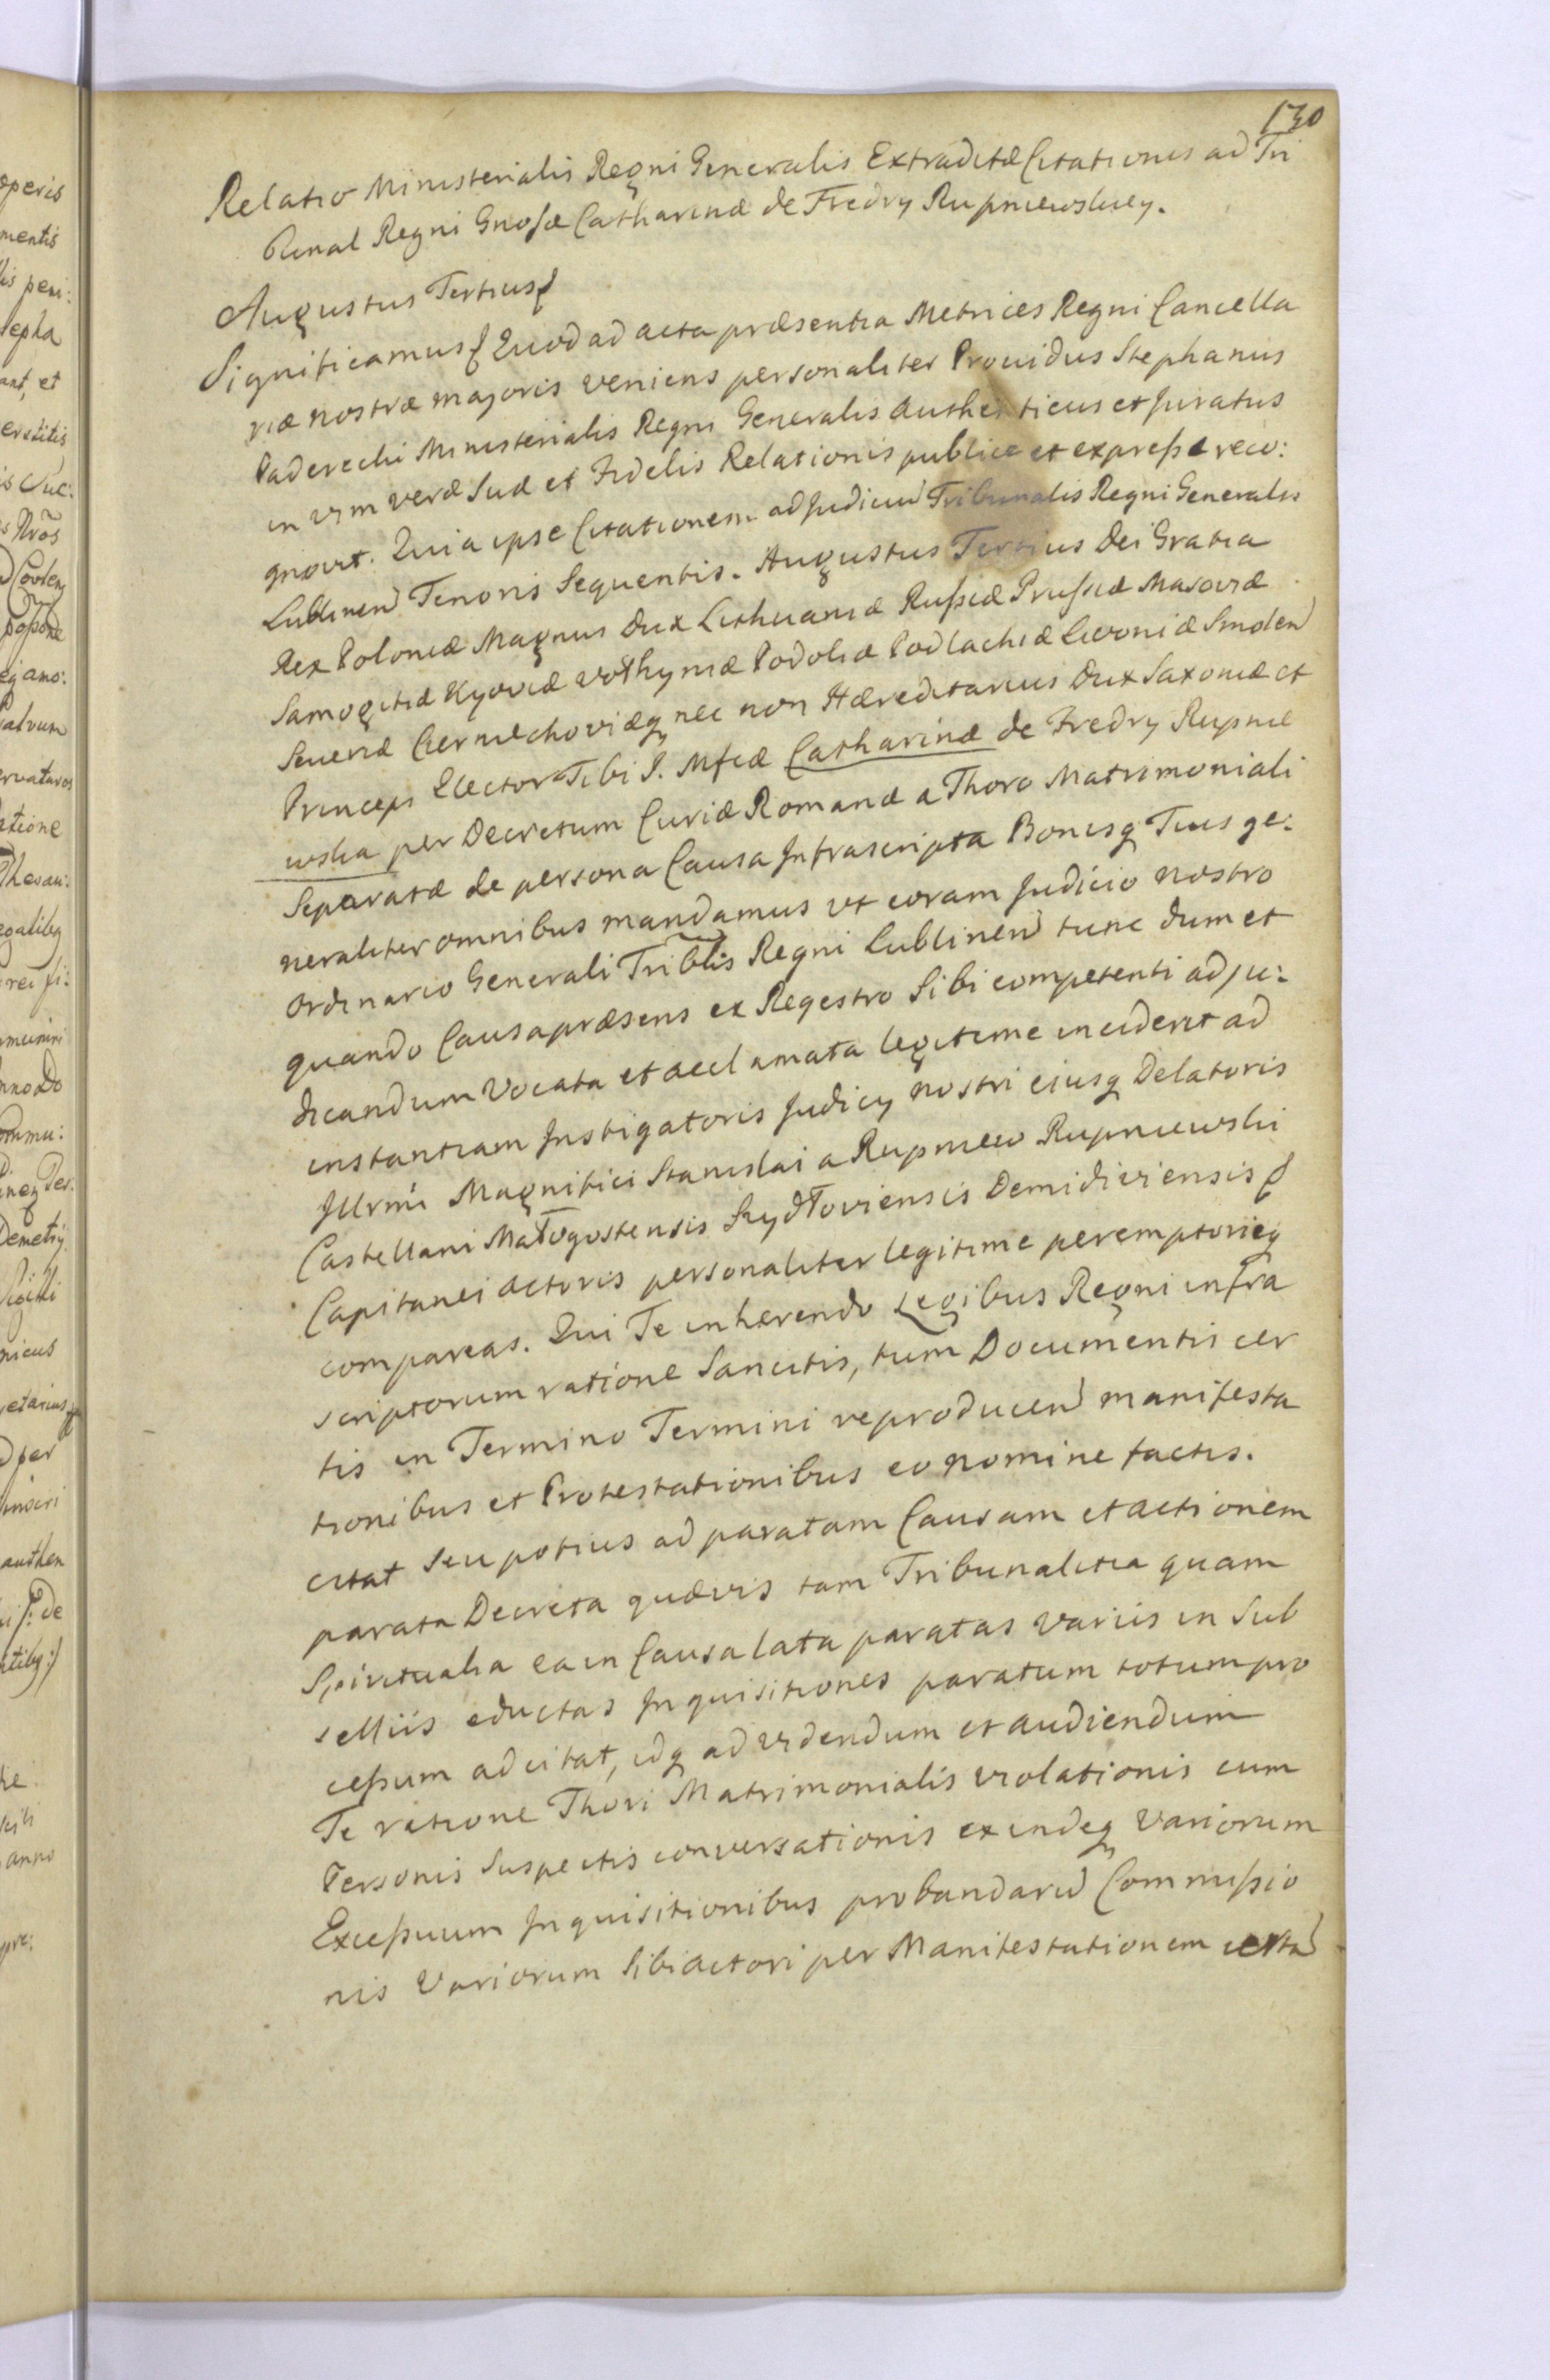 130
Relatio Ministerialis Regni Generalis Extraditæ Citationis ad Tri
bunal Regni Gnosæ Catharinæ de Fredry Rupniewskiey.
Augustus Tertius
Significamus Quod ad acta præsentia Metrices Regni Cancella
riæ nostræ majoris veniens personaliter Providus Stephanus
Paderecki Ministerialis Regni Generalis Authenticus et Juratus
in vim veræ suæ et Fidelis Relationis publice et expresse reco:
gnovit. Quia ipse Citationem ad Judicium Tribunalis Regni Generalis
Lublinen Tenoris Sequentis. Augustus Tertius Dei Gratia
Rex Poloniæ Magnus Dux Lithuaniæ Russiæ Prussiæ Masoviæ
Samogitiæ Kyoviæ Volhyniæ Podoliæ Podlachiæ Livoniæ Smolen
Severiæ Czerniechoviæq nec non Hæreditarius Dux Saxoniæ et
Princeps Elector Tibi G. Mfcæ Catharinæ de Fredry Rupnie
wska per Decretum Curiæ Romanæ a Thoro Matrimoniali
Separatæ de persona Causa Infrascripta Bonisq Tuis ge:
neraliter omnibus mandamus ut coram Judicio nostro
Ordinario Generali Triblis Regni Lublinen tunc dum et
quando Causa præsens ex Regestro sibi competenti adju:
dicandum vocata et acclamata legitime inciderit ad
instantiam Instigatoris Judicy nostri eiusq Delatoris
Jllrmi Magnifici Stanislai a Rupniew Rupniewski
Castellani Małogostensis Szydłoviensis Demidiviensis
Capitanei actoris personaliter legitime peremptorieq
compareas. Qui Te inherendo Legibus Regni infra
scriptorum ratione Sancitis, tum Documentis cer
tis in Termino Termini reproducen manifesta
tionibus et Protestationibus eo nomine factis.
citat seu potius ad paratam Causam et actionem
parata Decreta quævis tam Tribunalitia quam
Spiritualia ea in Causa lata paratas variis in Sub
selliis eductas Inquisitiones paratum totum pro
cessum adcitat, idq ad videndum et audiendum
Te ratione Thori Matrimonialis violationis cum
Personis Suspectis conversationis exindeq Variorum
Excessuum Inquisitionibus probandaru Commissio
nis Variorum sibi actori per Manifestationem certa